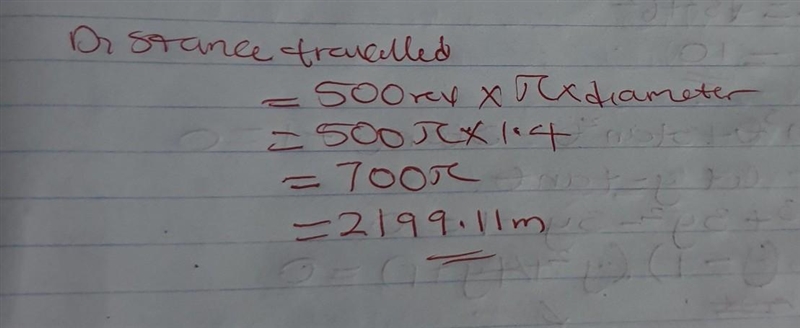 Distance travelled
= 500rev × π × diameter
= 500π × 1.4
= 700π
= 2199.11m